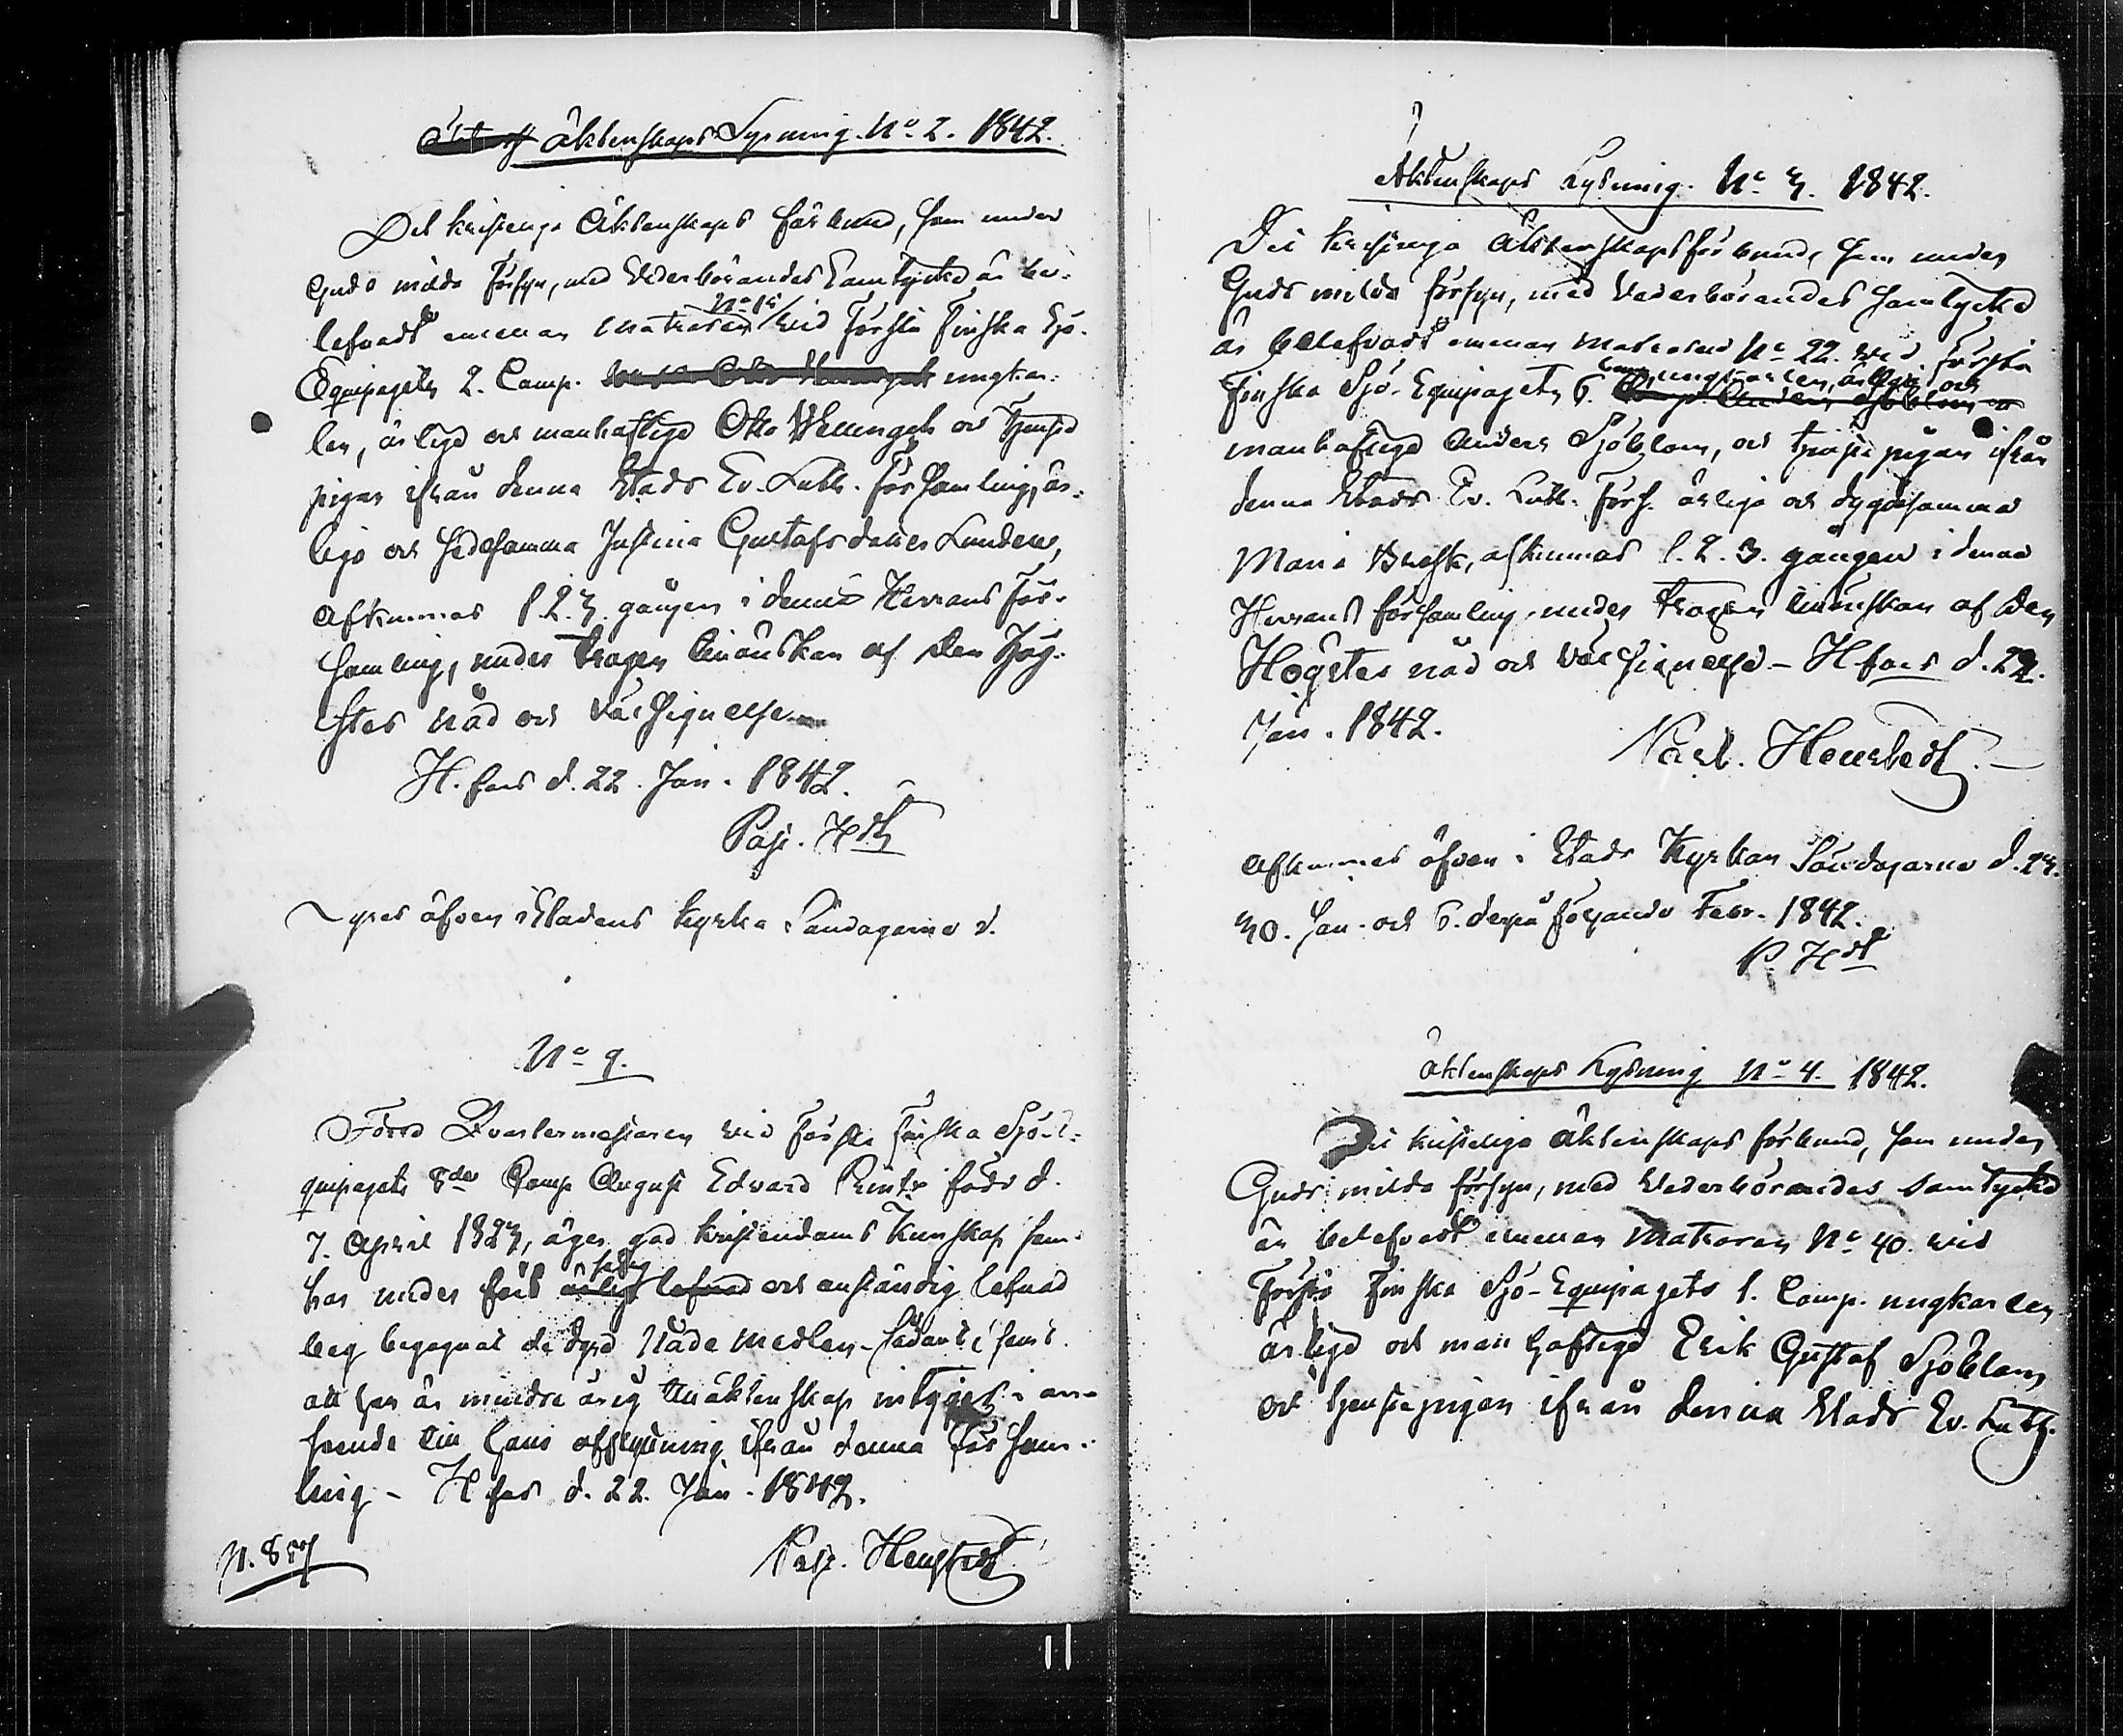 Äktenskaps Lysning. No. 2. 1842.
Det kristliga Äktenskaps förbund, som under
Guds milda försyn, med Vederbörandes Samtycke är be-
lefvadt emellan Matrosen No 15 vid Första Finska Sjö-
Equipagets 2. Comp. ungkar-
len, ärlige och manhaftige Otto Wellingh och tjenste
pigan ifrån denna Stads Ev. Luth. Församling, är-
liga och sedesamma Justina Gustafsdotter Lunden,
Afkunnas 1. 2. 3. gången i denna Herrans För-
samling, under trogen tillönskan af den Hög-
stes nåd och välsignelse.
H.fors d. 22. Jan. 1842.
Past. Hdt
Lyses äfven i Stadens kyrka Söndagarne d.
No 9.
Förre Qvartermästaren vid Första Finska Sjö-E-
quipagets 8de Comp August Edvard född d.
7. April 1823, äger god kristendoms kunskap sam-
har under fört ärligt lefnad och anständig lefnad
beg begagnat de dyra Nåde medlen - Sådant, samt
att han är mindre årig till äktenskap intygas i an-
seende till hans afflyttning ifrån denna försam-
ling - H.fors d. 22. Jan. 1842.
Past. Hengstedt
p. 857
Äktenskaps Lysning. No. 3. 1842.
Det kristliga Äktenskapsförbund, som under
Guds milda försyn, med Vederbörandes samtycke
är belefvadt emellan Matrosen No 22. vid Första
Finska Sjö-Equipagets 6. Comp. ungkarlen, ärlige och
Comp. Anders Sjöblom o
manhaftige Anders Sjöblom, och tjenstepigan ifrån
denna Stads Ev. Luth. Förs. ärliga och dygdesamma
Maria Brask, afkunnas 1. 2. 3. gången i denna
Herrans församling, under trogen tillönskan af den
Högstes nåd och välsignelse - H.fors d. 22.
Jan. 1842.
Past. Hengstedt. -
Afkunnas äfven i Stads Kyrkan Söndagarne d. 23.
30. Jan. och 6. derpå följande Febr. 1842.
P. Hdt
Äktenskaps Lysning No 4. 1842.
Det kristliga äktenskaps förbund, som under
Guds milda försyn, med Vederbörandes samtycke
är belefvadt emellan Matrosen No 40. vid
Första Finska Sjö-Equipagets 1. Comp. ungkarlen
ärlige och manhaftige Erik Gustaf Sjöblom,
och tjenstepigan ifrån denna Stads Ev. Luth.